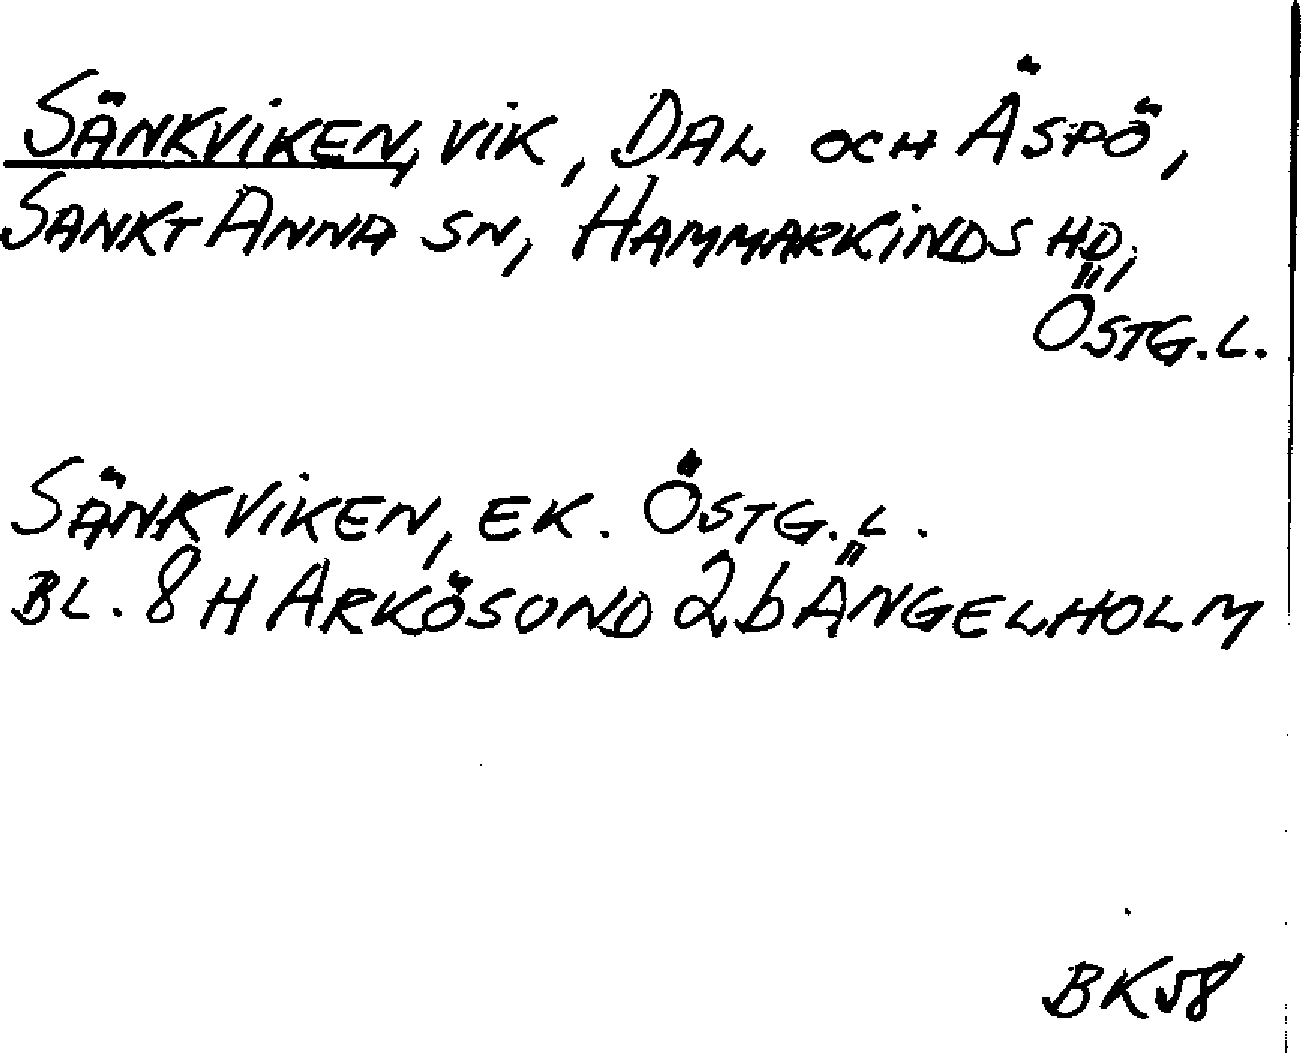 SÄNKVIKEN, VIK, DAL OCH ÄSPÖ,
SANKT ANNA SN, HAMMARKINDS HD,
ÖSTG.L.
SÄNKVIKEN, EK. ÖSTG.L.
BL. 8 H ARKÖSUND 2b ÄNGELHOLM
BK58